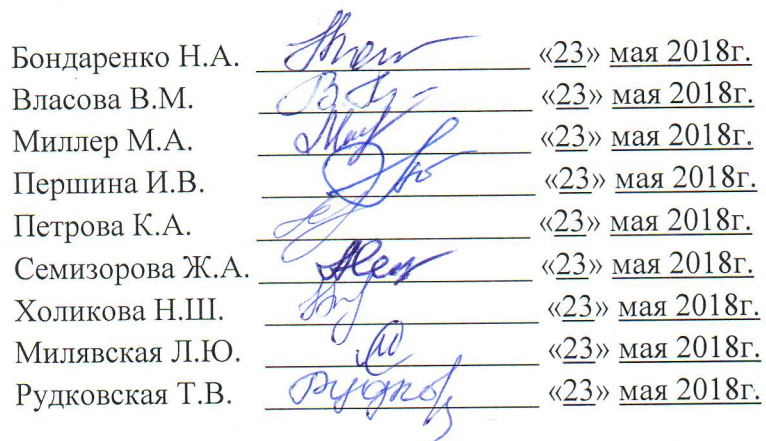 Бондаренко Н.А. «23» мая 2018г.
Власова В.М. «23» мая 2018г.
Миллер М.А. «23» мая 2018г.
Першина И.В. «23» мая 2018г.
Петрова К.А. «23» мая 2018г.
Семизорова Ж.А. «23» мая 2018г.
Холикова Н.Ш. «23» мая 2018г.
Милявская Л.Ю. «23» мая 2018г.
Рудковская Т.В. «23» мая 2018г.